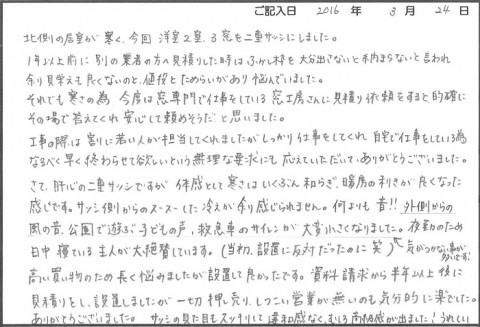 ご記入日 2016 年 3 月 24 日
北側の居室が寒く、今回 洋室2室、3窓を二重サッシにしました。
1年以上前に 別の業者の方へ見積りした時は ふかし枠を 大分出さないと納まらないと言われ
余り見栄えも良くないのと、値段と ためらいがあり 悩んでいました。
それでも 寒さの為 今度は 窓専門で仕事をしている 窓工房さんに 見積り依頼をすると 的確に
その場で 答えてくれ 安心して 頼めそうだ と思いました。
工事の際は 割りに若い人が担当してくれましたが しっかり仕事をしてくれ 自宅で仕事をしている為
なるべく早く終わらせて欲しいという 無理な要求にも 応えていただいて、ありがとうございました。
さて、肝心の二重サッシですが 体感として 寒さは いくぶん 和らぎ、暖房の利きが 良くなった
感じです。サッシ側からの スースー した 冷えが 余り感じられません。何よりも 音!! 外側からの
風の音、公園で遊ぶ 子どもの声、救急車のサイレンが 大変小さくなりました。夜勤のため
日中 寝ている 主人が 大絶賛しています。(当初、設置に反対だったのに 笑) 気がつかない事が多いです!
高い買い物のため 長く悩みましたが 設置して 良かったです。資料請求から 半年以上後に
見積りをし、設置しましたが 一切 押し売り、しつこい営業が 無いのも 気分的に 楽でした。
ありがとうございました。 サッシの見た目も スッキリして 違和感なく、むしろ 高級感が出ました! うれしい